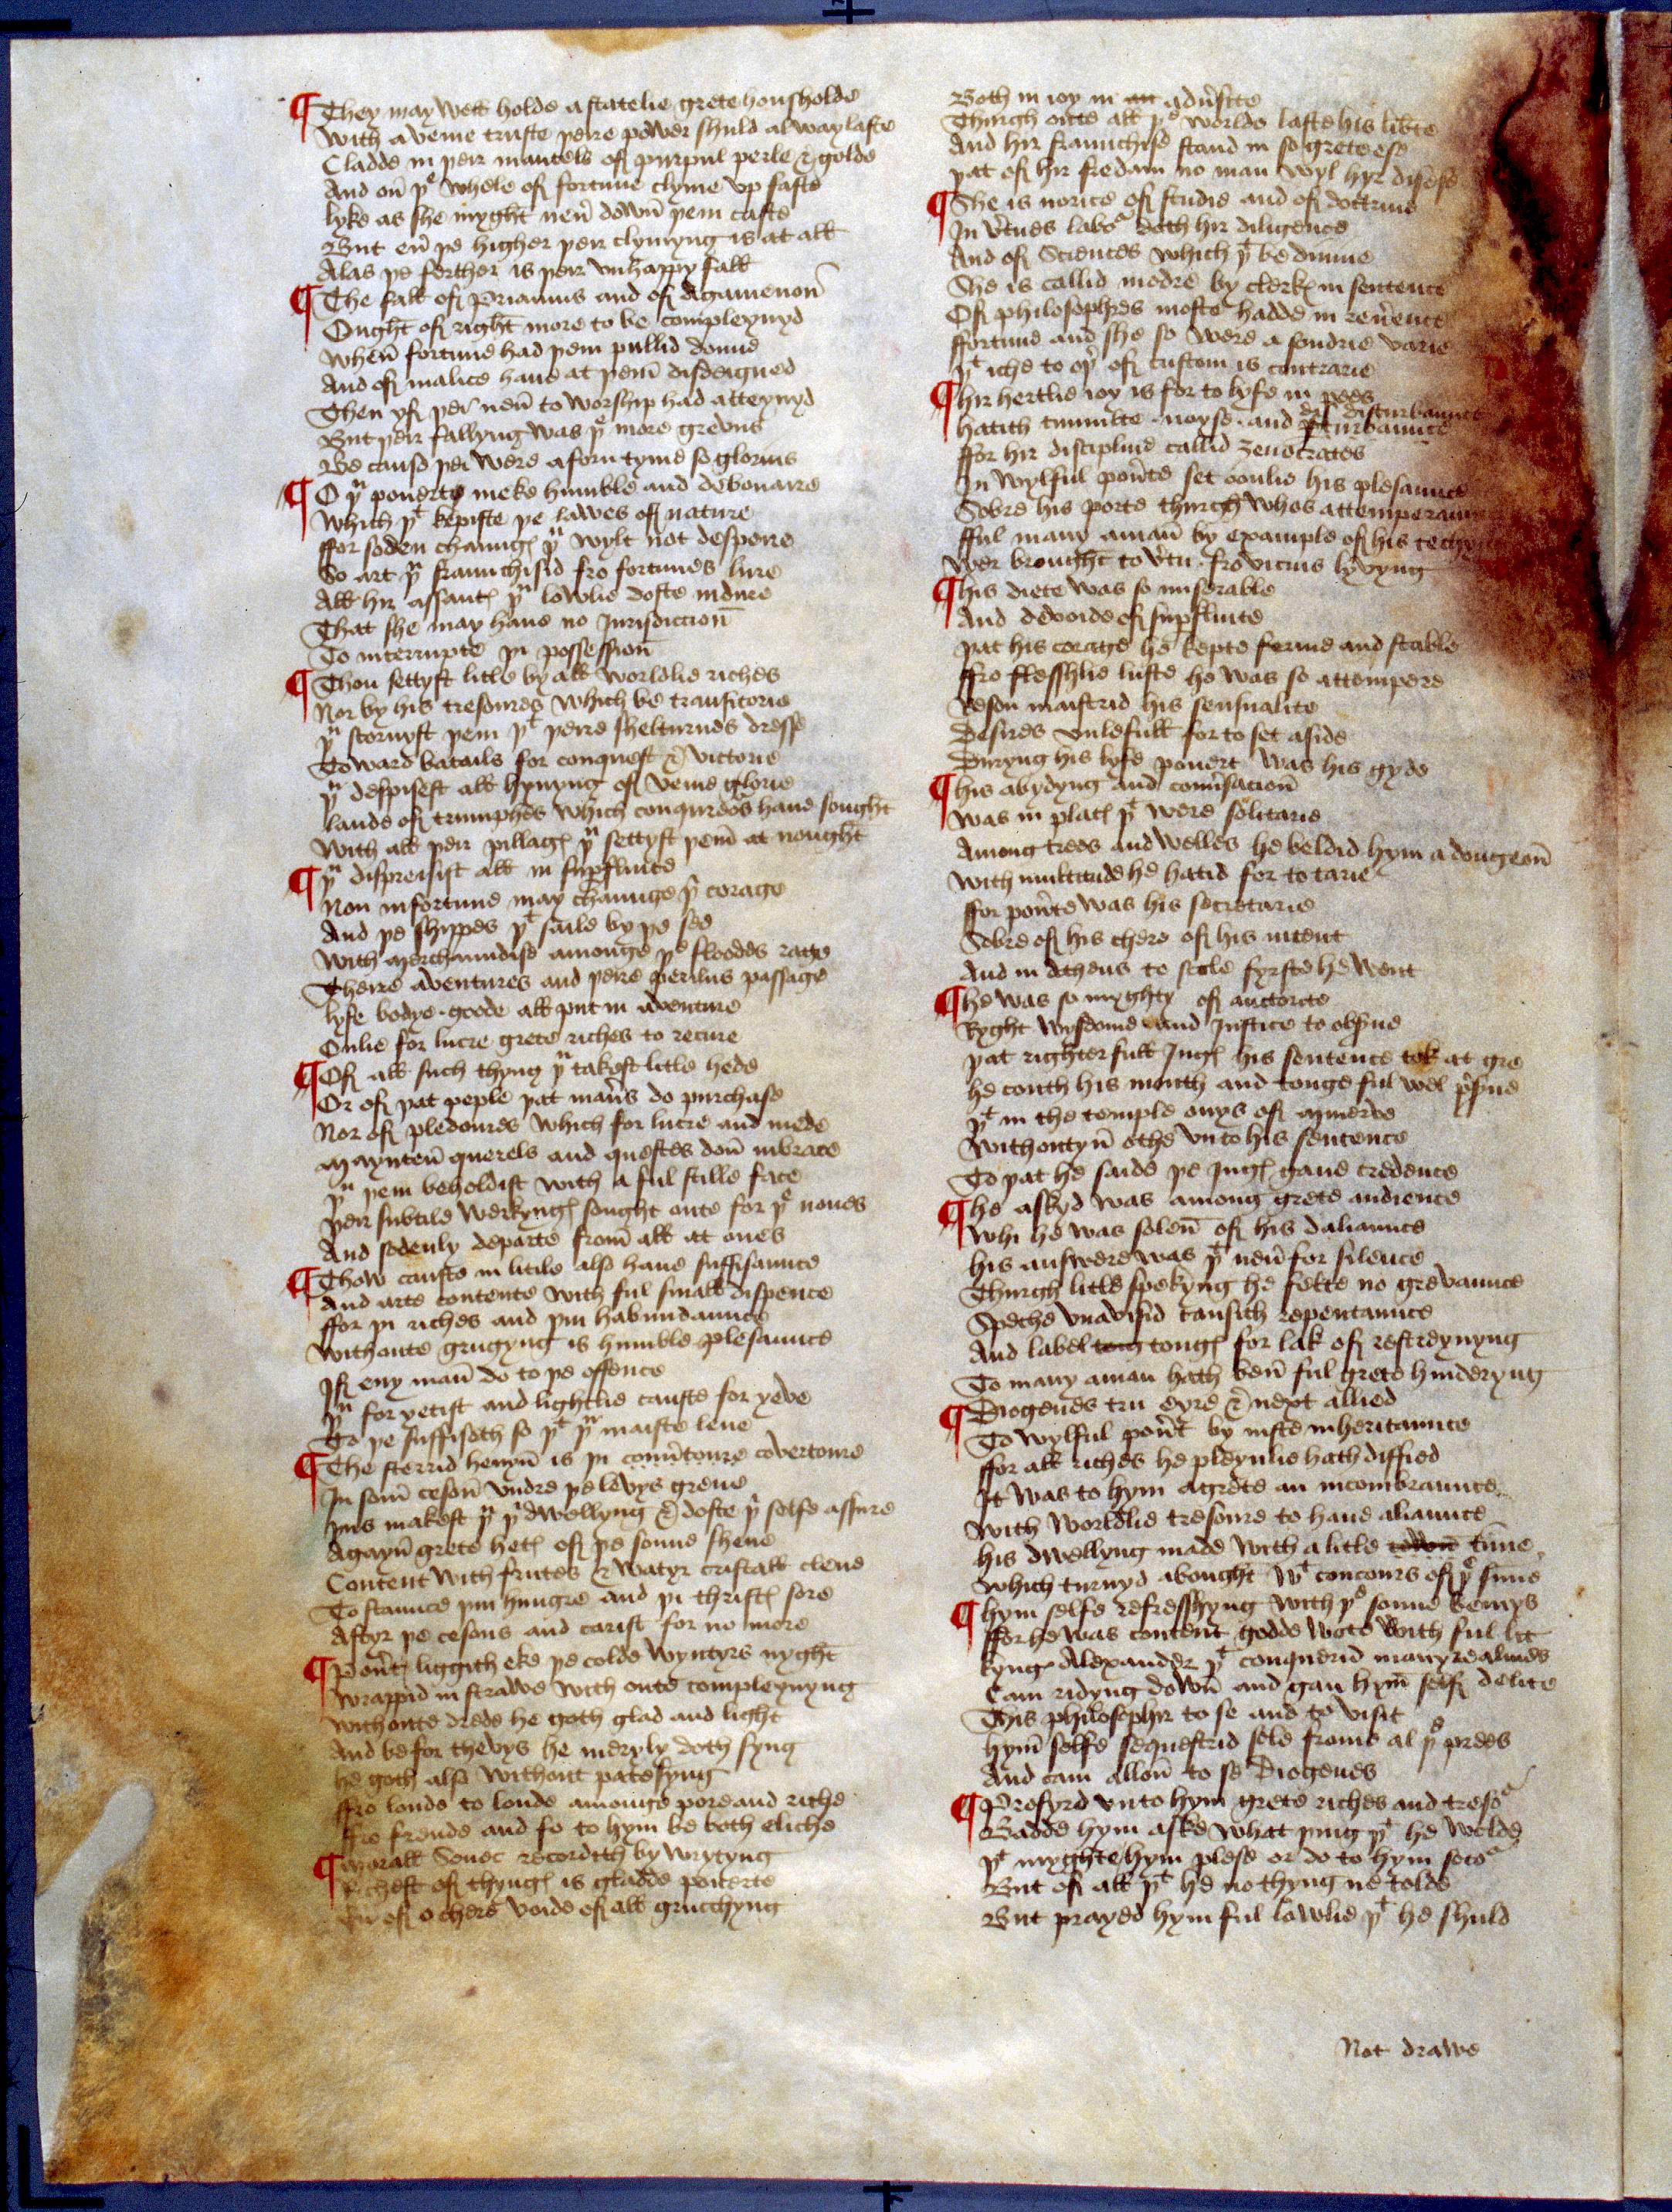 ¶ They may well holde a statelie grete housholde
With a veine truste þeire power shuld al way laste
Cladde in þeir mantels of purpul perle & golde
And on þe whele of fortune clyme vp faste
lyke as she myght neu̾ down þem caste
But eu̾ þe higher þeir clymyng is at all
Alas þe ferther is þeir vnhappy fall
¶ The fall of Priamus and of Agamenon
Ought of right more to be compleynyd
When fortune had þem pullid doune
And of malice haue at þem disdeigned
Then yf þei neu̾ to worship had atteynyd
But þeir fallyng was þe more grevus
Be cause þei were aforn tyme so glorius
¶ O þu pouerte meke humble and debonaire
Which þt kepiste þe lawes of nature
ffor soden chaunges þu wylt not despeire
So art þu fraunchisid fro fortunes lure
All hir assautes þu lowlie doste indure
That she may haue no Jurisdiction
To interrupte þi possession
¶ Thou settyst litle by all worldlie riches
Nor by his tresoures which be transitorie
þu scornyst þem þt þeire sheltruns dresse
Toward batails for conquest & victorie
þu despisest all hynyng of veine glorie
laude of triumphes which conqurdos haue sought
With all þeir pillages þu settyst þem at nought
¶ þu dispreisist all in supfluite
Non infortune may chaunge þi corage
And þe shippes þt saile by þe see
With merchaundise amonge þe floodes rage
Theire aventures and þeire perilus passage
lyfe bodye . goode all put in adventure
Onlie for lucre grete riches to recure
¶ Of all such thyng þu takest litle hede
Or of þat peple þat man̾s do purchase
Nor of pledoures which for lucre and mede
Maynten querels and questes don inbrace
þu þem beholdist with a ful stille face
þeir subtile werkynges sought oute for þe nones
And sodenly departe from all at ones
¶ Thow canste in litile also haue suffisaunce
And arte contente with ful small dispence
ffor þi riches and þin habundaunce
Withoute grugyng is humble plesaunce
If eny man do to þe offence
þu for yetist and lightlie canste for yeve
To þe suffiseth so þt þu maiste leue
¶ The sterrid heuyn is þi cou̾toure covertoure
In som ceson vndre þe levys grene
þus makest þu þi dwellyng & doste þi selfe assure
Agayn grete hetes of þe sonne shene
Content with frutes & watyr cristall clene
To staunce þin hungre and þi thristes sore
Aftyr þe cesons and carist for no more
¶ Pou̾te liggith eke þe colde wyntyrs nyght
Wrappid in strawe with oute compleynyng
Withoute drede he goth glad and light
And befor thevys he meryly doth syng
he goth also without patesyng
ffro londe to londe amonge pore and riche
ffro frende and fo to hym be both eliche
¶ Morall Senec recordeth by wrytyng
Richest of thynges is gladde pouerte
Eu̾ of o chere voide of all grucchyng
Both in ioy in an adu̾site
Thurgh oute all þe worlde laste his lib̾te
And hir fraunchise stand in so grete ese
þat of hir fredam no man wyl hyr disese
¶ She is norice of studie and of doctrine
In v̾tues labor doth hir diligence
And of Sciences which þt be diuine
She is callid modre by clerkes in sentence
Of philosophres moste hadde in reu̾ence
ffortune and she so were a sondrie varie
þt iche to oþer of custom is contrarie
¶ hir hertlie ioy is for to lyfe in pees
hatith tumulte . noyse . and disturbaunce perturbaunce
ffor hir discipline callid Zenocrates
In wylful pou̾te set oonlie his plesaunce
Sobre his porte thurgh whos attemperaunce
fful many a man by example of his techyng
Wer brought to v̾tu . fro vicius lyvyng
¶ his diete was so miserable
And devoide of supfluite
þat his corage he kepte ferme and stable
ffro flesshlie luste he was so attempere
Reson maistrid his sensualite
Desires vnlefull for to set aside
Duryng his lyfe pouert was his gyde
¶ his abydyng and conu̾sacion
Was in places þt were solitarie
Among trees and welles he beldid hym a dongeon
With multitude he hatid for to tarie
ffor pou̾te was his secretarie
Sobre of his chere of his intent
And in Athenes to scole fyrste he went
¶ he was so myghty of auctorite
Ryght wysdome and Justice to obs̾ue
þat righterfull Juges his sentence tok at gre
he couth his mouth and tonge ful wel p̾s̾ue
þt in the temple onys of Minerve
Withoutyn othe vnto his sentence
To þat he saide þe Juges gaue credence
¶ he askyd was among grete audience
Whi he was solen of his daliaunce
his answere was þt neu̾ for silence
Thurgh litle spekyng he felte no grevaunce
Speche vnavisid causith repentaunce
And label tong tonges for lak of restreynyng
To many a man hath ben ful grete hinderyng
¶ Diogenes tru eyre & next allied
To wylful pou̾te by iuste inheritaunce
ffor all riches he pleynlie hath diffied
It was to hym a grete an incombraunce
With worldlie tresoure to haue aliaunce
his dwellyng made with a litle tunne
Which turnyd abought wt concours of þe sunne
¶ hym selfe refresshyng with þe sonne bemys
ffor he was content godde wote with ful lit
kyng Alexander þt conquerid many realmes
Cam ridyng down and gan hym self delite
This philosophir to se and to visit
hym selfe sequestrid sole frome al þe prees
And cam allon to se Diogenes
¶ Profyrd vnto hym grete riches and tresor
Badde hym aske what þing þt he wolde
þt myghte hym plese or do to hym socor
But of all þt he nothyng ne tolde
But prayed hym ful lowlie þt he shuld
Not drawe